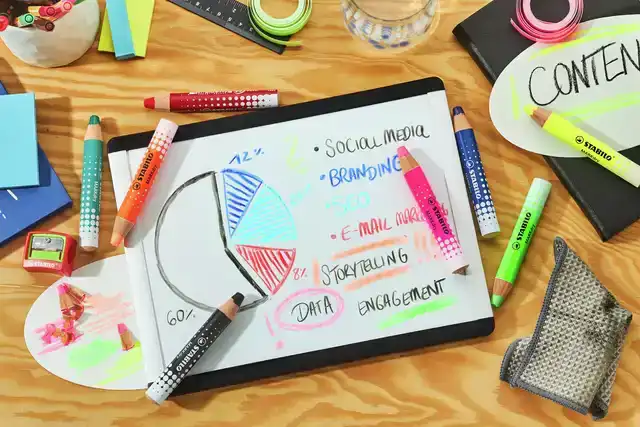 CONTEN
12%
• SOCIAL MEDIA
• BRANDING
SEO
• E-MAIL MARKETING
STORYTELLING
8%
60%
DATA
ENGAGEMENT
STABILO
STABILO
STABILO
STABILO
STABILO
STABILO